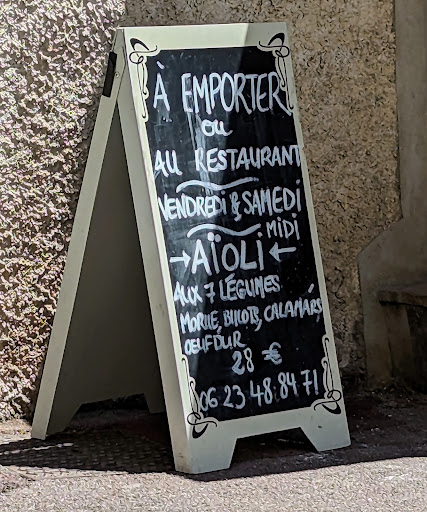 À EMPORTER
ou
AU RESTAURANT
VENDREDI & SAMEDI
MIDI
→ AÏOLI ←
AUX 7 LÉGUMES
MORUE, BULOTS, CALAMARS,
OEUF DUR
28 €
06 23 48 84 71